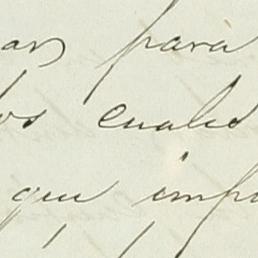 para
los cuales
que impo